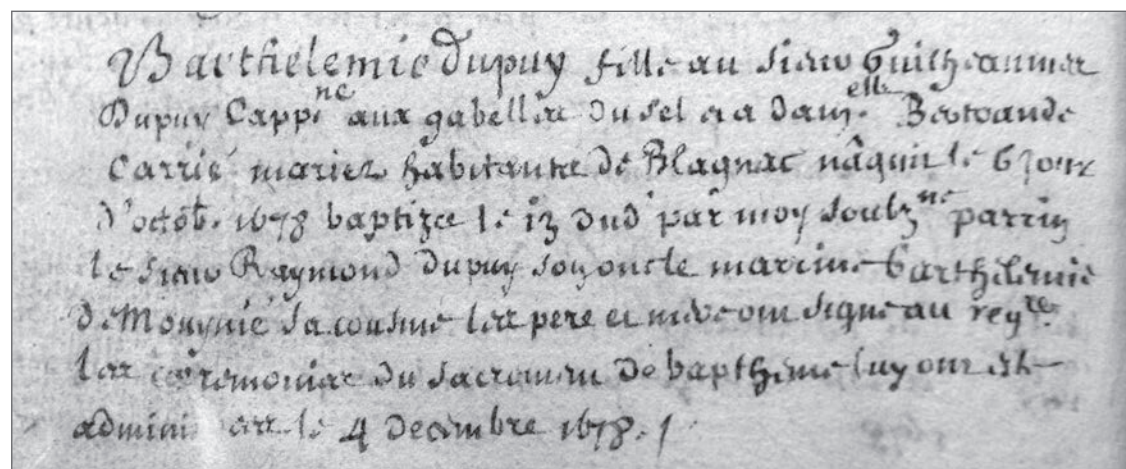 Barthelemie Dupuy fille au sieur Guilheaumes
Dupuy Capp.ne aux gabelles du sel et a dam.elle Bertrande
Carrié mariez habitants de Blagnac nâquit le 6 jour
d'octob. 1678 baptizee le 13 dud' par moy soubz.ne parrin
le sieur Raymond Dupuy son oncle marine Barthelemie
de Mouynié sa cousine les pere et mere ont signe au reg.re
les ceremonies du sacrement de bapthême luy ont esté
le 4 decembre 1678.